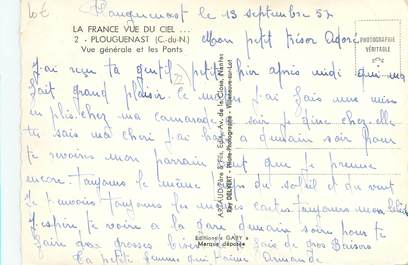 Plouguenast le 13 septembre 57
LA FRANCE VUE DU CIEL ...
2 - PLOUGUENAST (C.-du-N.)
Vue générale et les Ponts
PHOTOGRAPHIE
VÉRITABLE
Mon petit trésor Adoré
J'ai reçu ta gentil petite hier après midi qui me
fait grand plaisir. Ce matin j'ai fais une mise
en plis chez ma camarade ce soir je dine chez elle
tu sais ma cheri j'ai hate a demain soir pour
te revoir mon parrain veut que je prenne
encore toujours le même du soleil et du vent
Je reçois toujours les cartes toujours mon
J'espère te voir a la gare demain soir pour te
faire gros grosses bises fais de gros Baisers
Ta petite femme qui t'aime Armande
ARTAUD Père & Fils, Edit., Av. de la Close, Nantes
Ray DELVERT - Pilote-Photographe - Villeneuve-sur-Lot
Editions "GABY"
Marque déposée